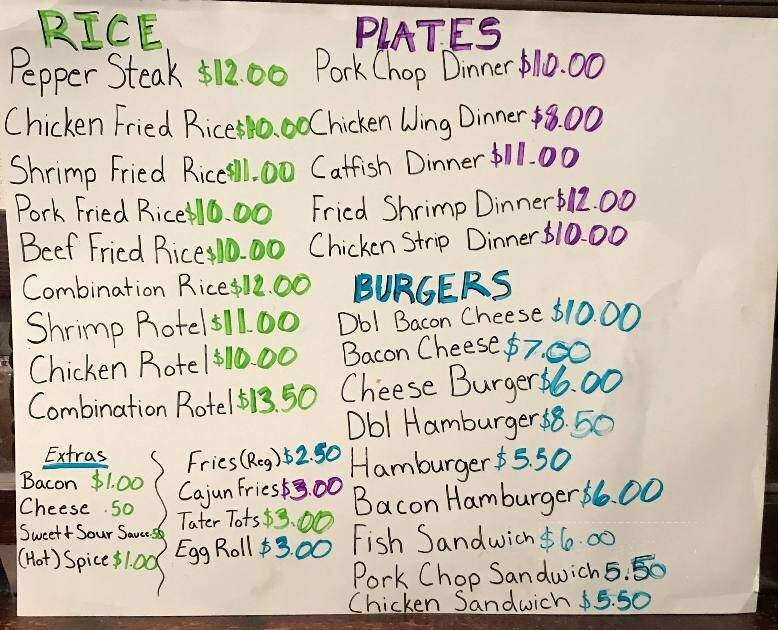 RICE
Pepper Steak $12.00
Chicken Fried Rice $10.00
Shrimp Fried Rice $11.00
Pork Fried Rice $10.00
Beef Fried Rice $10.00
Combination Rice $12.00
Shrimp Rotel $11.00
Chicken Rotel $10.00
Combination Rotel $13.50
Extras
Bacon $1.00
Cheese .50
Sweet + Sour Sauce .50
(Hot) Spice $1.00
Fries (Reg) $2.50
Cajun Fries $3.00
Tater Tots $3.00
Egg Roll $3.00
PLATES
Pork Chop Dinner $10.00
Chicken Wing Dinner $8.00
Catfish Dinner $11.00
Fried Shrimp Dinner $12.00
Chicken Strip Dinner $10.00
BURGERS
Dbl Bacon Cheese $10.00
Bacon Cheese $7.00
Cheese Burger $6.00
Dbl Hamburger $8.50
Hamburger $5.50
Bacon Hamburger $6.00
Fish Sandwich $6.00
Pork Chop Sandwich 5.50
Chicken Sandwich $5.50